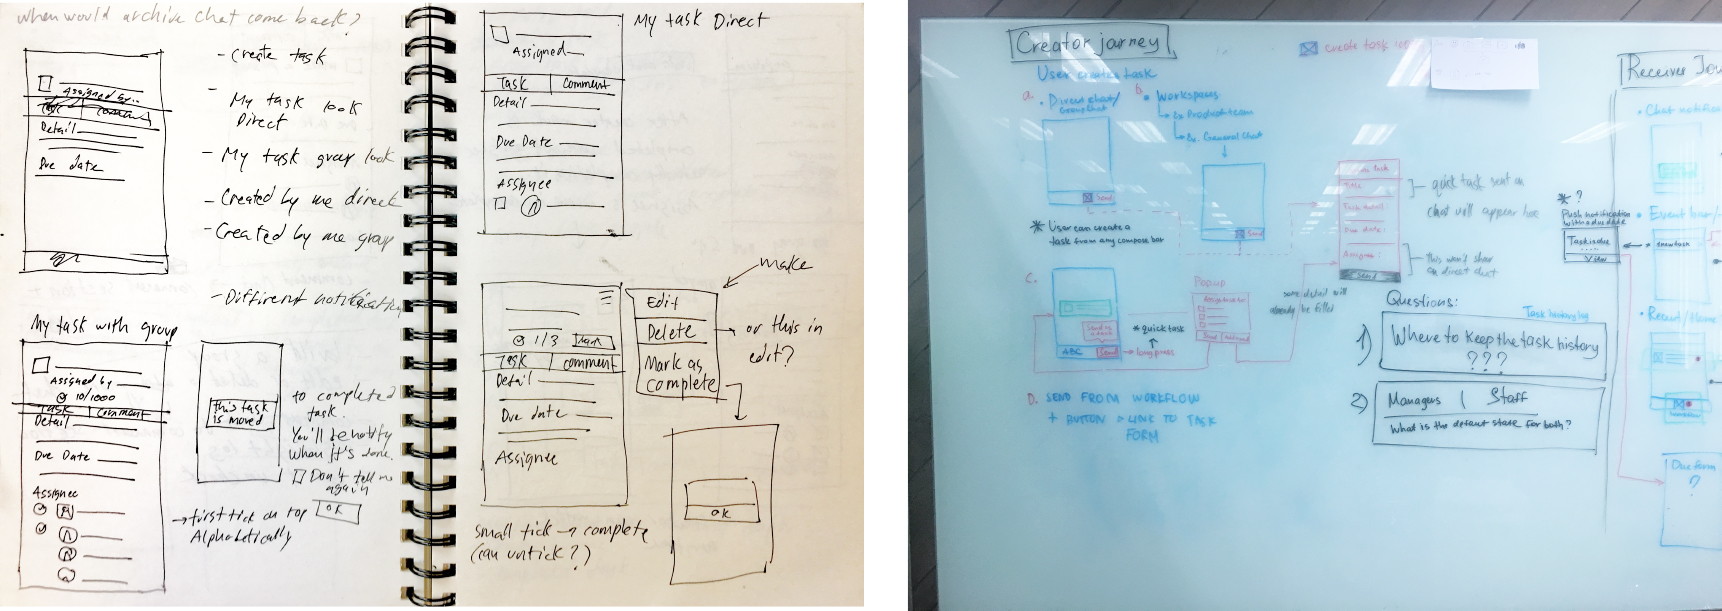 when would archive chat come back?
Assigned by..
Task comment
Detail
Due date
- Create task
- My task look
Direct
- My task group look
- Created by me direct
- Created by me group
- Different notification
My task with group
Assigned by
10/1000
Task comment
Detail
Due Date
Assignee
this task
is moved
to completed
task.
You'll be notify
when it's done.
Don't tell me
again
OK
→ first tick on top
Alphabetically
My task Direct
Assigned
Task comment
Detail
Due Date
Assignee
1/3
Task comment
Detail
Due date
Assignee
make
Edit
Delete
Mark as
complete
or this in
edit?
OK
small tick → complete
(can untick?)
Creator jorney
create task
User creates task
a. • Direct chat/
Group chat
b. • Workspaces
→ ex Product team
→ ex. General Chat
Send
Send
* User can create a
task from any compose bar
C.
ABC
Send
* quick task
→ long press
Popup
D. SEND FROM WORKFLOW
+ BUTTON > LINK TO TASK
FORM
Title:
Task detail:
Due date:
Assignee:
Send
quick task sent on
chat will appear here
this won't show
on direct chat
some detail will
already be filled
Questions:
Task history log
1) Where to keep the task history
???
2) Managers | Staff
What is the default state for both?
* ?
Push notification
with a due date
Task is due
View
new task
Receiver Jou
• Chat notific
• Event
•
Due form
?